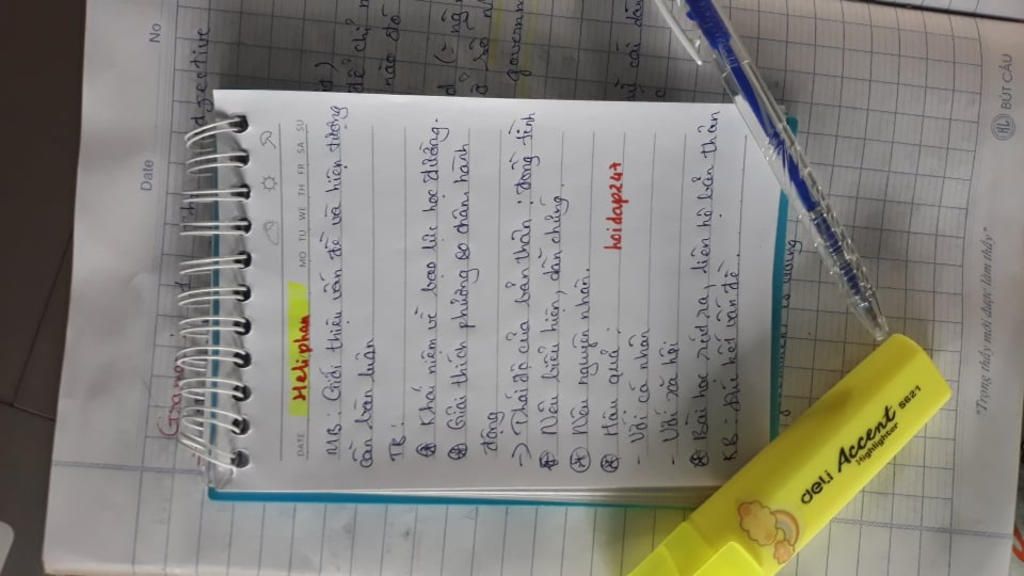 No
Date
adjective
DATE Heliphan MO TU WE TH FR SA SU
MB: Giới thiệu vấn đề và hiện tượng
cần bàn luận
TB:
Khái niệm về bạo lực học đường.
Giải thích phương
động
-> Thái độ của bản thân: đồng tình
Nêu biểu hiện, dẫn chứng.
Nêu nguyên nhân.
Hậu quả:
hoidap247
- Với cá nhân
- Với xã hội
Bài học rút ra, liên hệ bản thân
KB: vấn đề.
deli Accent S621
Highlighter
BÚT CẦU
"Trọng thầy mới được làm thầy"